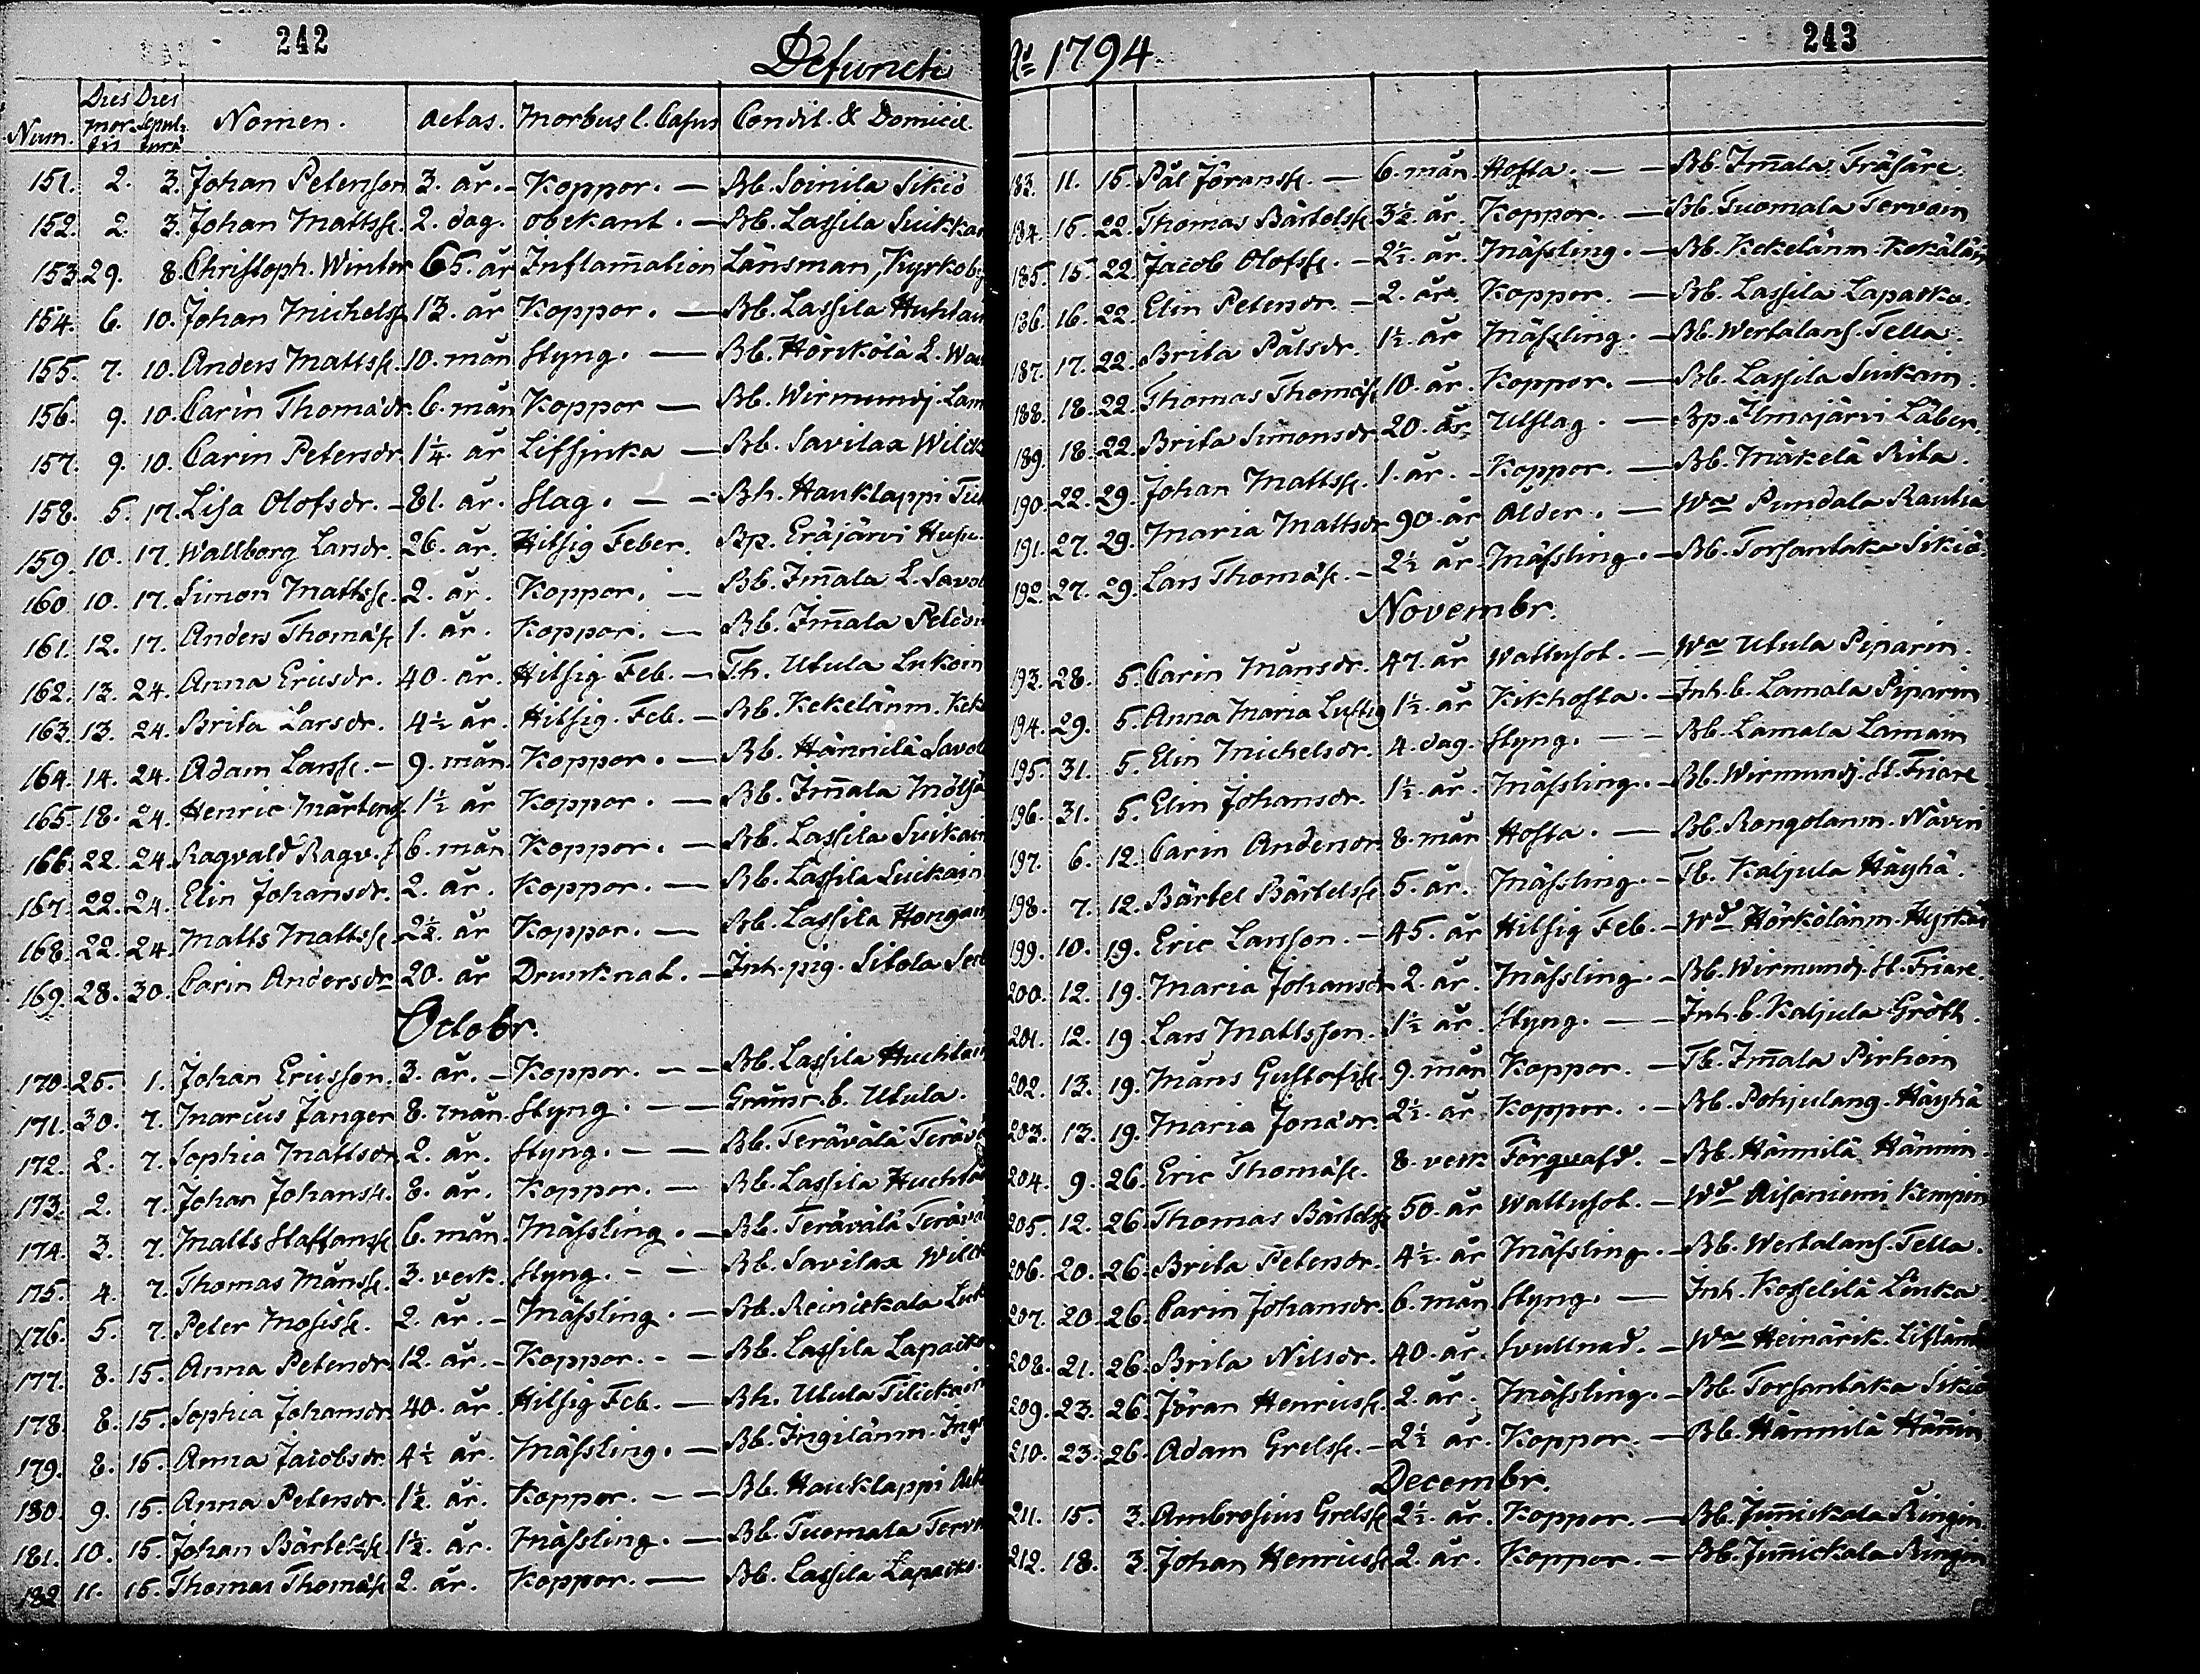 242
Defuncti
Num. Dies mortis Dies sepulturæ Nomen. Aetas. Morbus l. Casus Condit. & Domicil.
151. 2. 3. Johan Peterson 3. år. - Koppor. — Bb. Soinila Sikiö
152. 2. 3. Johan Mattss. 2. dag. obekant. — Bb. Lassila Suikkan
153. 29. 8. Christoph. Winter 65. år Inflam̄ation Länsman, Kyrkoby
154. 6. 10. Johan Michelss. 13. år Koppor. — Bb. Lassila Huhtan
155. 7. 10. Anders Mattss. 10. mån Styng. — Bb. Hörkölä L.
156. 9. 10. Carin Thomædr. 6. mån Koppor — Bb. Wirmundj. Lam
157. 9. 10. Carin Petersdr. 1¼. år Lifsjuka — Bb. Savilax Wilck
158. 5. 17. Lisa Olofsdr. - 81. år. Slag. — Bh. Hauklappi
159. 10. 17. Wallborg Larsdr. 26. år. Hitsig Feber. Bp. Eräjärvi Husu.
160. 10. 17. Simon Mattss. 2. år. Koppor. — Bb. Im̄ala L. Savol
161. 12. 17. Anders Thomæss. 1. år. Koppor. — Bb. Im̄ala Peldon
162. 13. 24. Anna Ericsdr. 40. år. Hitsig Feb. — Th. Utula Lukoin
163. 13. 24. Brita Larsdr. 4½ år. Hitsig. Feb. — Bb. Kekelänm. Kek
164. 14. 24. Adam Larss. - 9. mån. Koppor. — Bb. Hännilä Savol
165. 18. 24. Henric Mårtenss. 1½ år Koppor. — Bb. Im̄ala Möljä
166. 22. 24. Ragvald Ragv. s. 6. mån Koppor. — Bb. Lassila Suikain
167. 22. 24. Elin Johansdr. 2. år. Koppor. — Bb. Lassila Suikain
168. 22. 24. Matts Mattss. 2½. år Koppor. — Bb. Lassila Hongain
169. 28. 30. Carin Andersdr. 20. år Drunknat. — Inh. pig. Sitola
Octobr.
170. 25. 1. Johan Ericsson. 3. år. - Koppor. — Bb. Lassila Huchtain
171. 30. 7. Marcus Janger 8. mån. Styng. — Gränsr. b. Utula.
172. 2. 7. Sophia Mattsdr. 2. år. Styng. — Bb. Terävälä Teräv
173. 2. 7. Johan Johanss. 8. år. Koppor. — Bb. Lassila Huchta
174. 3. 7. Matts Staffanss. 6. mån. Mässling. — Bb. Terävälä Teräv
175. 4. 7. Thomas Månss. 3. veck. Styng. — Bb. Savilax Wilck
176. 5. 7. Peter Mosiss. 2. år. - Mässling. — Bb. Reinickala
177. 8. 15. Anna Petersdr. 12. år. - Koppor. - - Bb. Lassila Lapack
178. 8. 15. Sophia Johansdr. 40. år. Hitsig Feb. — Bh. Utula Tilickain
179. 8. 15. Anna Jacobsdr. 4½ år. Mässling. — Bb. Ingilänm. Ing
180. 9. 15. Anna Petersdr. 1½. år. Koppor. — Bb. Hauklappi
181. 10. 15. Johan Bärtelss. 1½. år. Mässling. — Bb. Tuomala Terv
182. 11. 15. Thomas Thomæss. 2. år. Koppor. — Bb. Lassila Lapack
243
Aº 1794.
183. 11. 15. Pål Jöranss. — 6. mån. Hosta. — Bb. Im̄ala Fräsäre.
184. 15. 22. Thomas Bärtelss. 3½. år. Koppor. — Bb. Tuomala Tervoin
185. 15. 22. Jacob Olofss. - 2½. år. Mässling. — Bb. Kekelänm. Kekäläin
186. 16. 22. Elin Petersdr. - 2. år. Koppor. — Bb. Lassila Lapatko.
187. 17. 22. Brita Pålsdr. 1½ år Mässling. — Bb. Wertalans. Tella.
188. 18. 22. Thomas Thomæss. 10. år. Koppor. — Bb. Lassila Suikain.
189. 18. 22. Brita Simonsdr. 20. år. Utslag. — Bp. Ilmajärvi Läber.
190. 22. 29. Johan Mattss. 1. år. - Koppor. — Bb. Mäkelä Rita.
191. 27. 29. Maria Mattsdr. 90. år Ålder. — Wa Pundala Rautia
192. 27. 29. Lars Thomæss. - 2½ år Mässling. — Bb. Torsantaka Sikiö
Novembr.
193. 28. 5. Carin Månsdr. 47. år Wattusot. — Wa Utula Piparin.
194. 29. 5. Anna Maria Lustig 1½. år Kikhosta. — Inh. b. Lamala Piparin
195. 31. 5. Elin Michelsdr. 4. dag. Styng. — Bb. Lamala Lamain
196. 31. 5. Elin Johansdr. 1½. år. Mässling. — Bb. Wirmundj. St. Friare
197. 6. 12. Carin Andersdr. 8. mån Hosta. — Bb. Rongolanm. Nävin
198. 7. 12. Bärtel Bärtelss. 5. år. Mässling. — Tb. Kaljula Häyhä.
199. 10. 19. Eric Larsson. - 45. år Hitsig Feb. — Wd Hörkölänm. Hyrkäs
200. 12. 19. Maria Johansdr. 2. år. Mässling. — Bb. Wirmundj. St. Friare.
201. 12. 19. Lars Mattsson. 1½ år. Styng. — Inh. b. Kaljula Gröth.
202. 13. 19. Måns Gustafss. 9. mån Koppor. — Tb. Im̄ala Pirhoin
203. 13. 19. Maria Jonædr. 2½. år. Koppor. — Bb. Pohjulang. Häyhä
204. 9. 26. Eric Thomæss. 8. veck Förqvafd. — Bb. Hännilä Hännin.
205. 12. 26. Thomas Bärtelss. 50. år Wattusot. — Wd Aisaniemi Kempin
206. 20. 26. Brita Petersdr. 4½. år Mässling. — Bb. Wertalans. Tella.
207. 20. 26. Carin Johansdr. 6. mån Styng. — Inh. Kosselilä Linka
208. 21. 26. Brita Nilsdr. 40. år. Svullnad. — Wa Heinärik. Lifländ
209. 23. 26. Jöran Henricss. 2. år. Mässling. — Bb. Torsantaka Sikiö
210. 23. 26. Adam Grelss. - 2½ år. Koppor. — Bb. Hännilä Hännin
Decembr.
211. 15. 3. Ambrosius Grelss. 2½. år. Koppor. — Bb. Jun̄ickala Ringin.
212. 18. 3. Johan Henricss. 2. år. Koppor. — Bb. Jun̄ickala Ringin